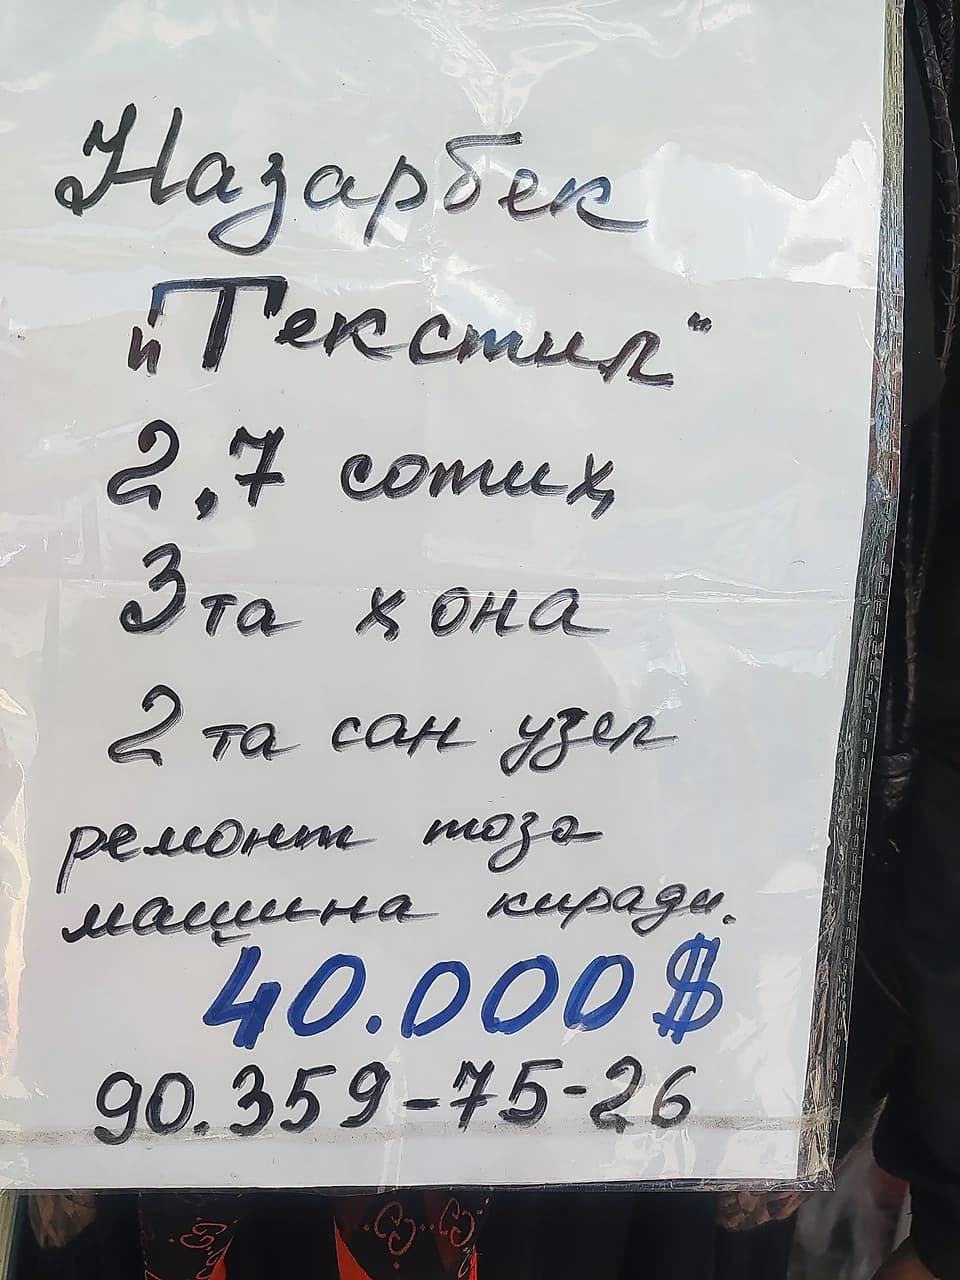 Назарбек
"Текстил"
2,7 сотиҳ
3 та ҳона
2 та сан узел
ремонт тоза
машина киради.
40.000$
90.359-75-26